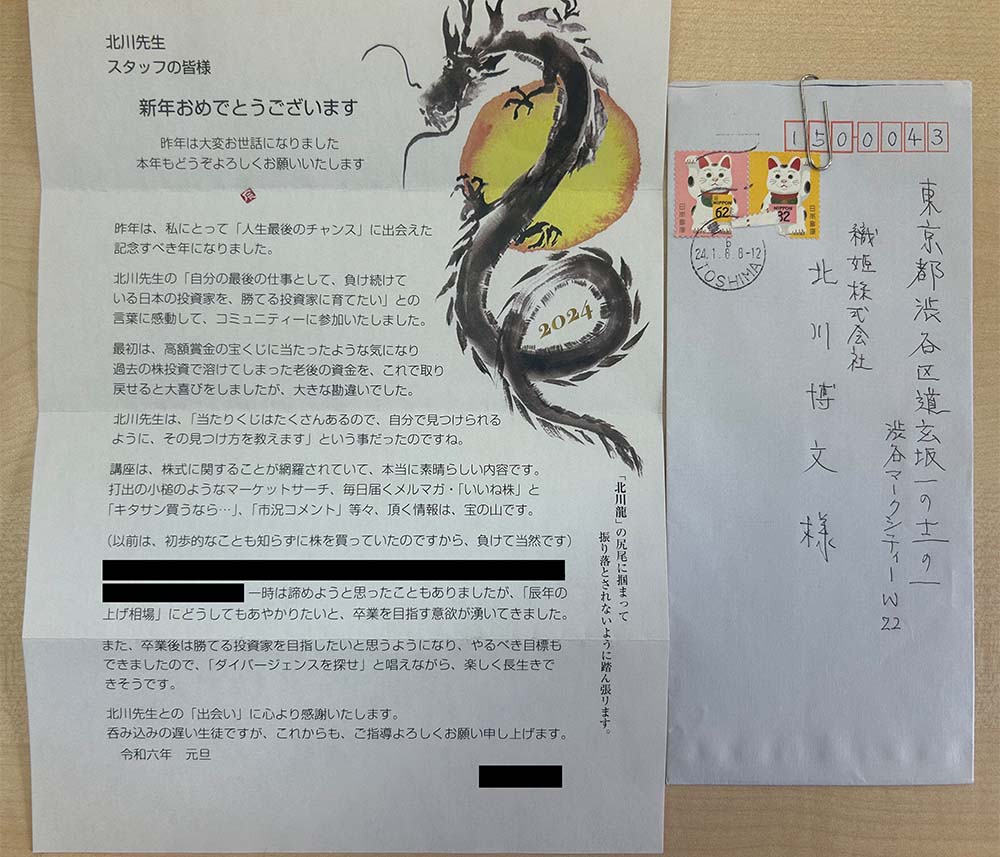 北川先生
スタッフの皆様
新年おめでとうございます
昨年は大変お世話になりました
本年もどうぞよろしくお願いいたします
昨年は、私にとって「人生最後のチャンス」に出会えた
記念すべき年になりました。
北川先生の「自分の最後の仕事として、負け続けて
いる日本の投資家を、勝てる投資家に育てたい」との
言葉に感動して、コミュニティーに参加いたしました。
最初は、高額賞金の宝くじに当たったような気になり
過去の株投資で溶けてしまった老後の資金を、これで取り
戻せると大喜びをしましたが、大きな勘違いでした。
北川先生は、「当たりくじはたくさんあるので、自分で見つけられる
ように、その見つけ方を教えます」という事だったのですね。
講座は、株式に関することが網羅されていて、本当に素晴らしい内容です。
打出の小槌のようなマーケットサーチ、毎日届くメルマガ・「いいね株」と
「キタサン買うなら…」、「市況コメント」等々、頂く情報は、宝の山です。
（以前は、初歩的なことも知らずに株を買っていたのですから、負けて当然です）
一時は諦めようと思ったこともありましたが、「辰年の
上げ相場」にどうしてもあやかりたいと、卒業を目指す意欲が湧いてきました。
また、卒業後は勝てる投資家を目指したいと思うようになり、やるべき目標も
できましたので、「ダイバージェンスを探せ」と唱えながら、楽しく長生きで
きそうです。
北川先生との「出会い」に心より感謝いたします。
呑み込みの遅い生徒ですが、これからも、ご指導よろしくお願い申し上げます。
令和六年　元旦
2024
「北川龍」の尻尾に掴まって
振り落とされないように踏ん張ります。
1500043
日本郵便
62
NIPPON
日本郵便
NIPPON
24.1.6 8-12
TOSHIMA
東京都渋谷区道玄坂一の士一の一
渋谷マークシティーW22
織姫株式会社
北川博文様